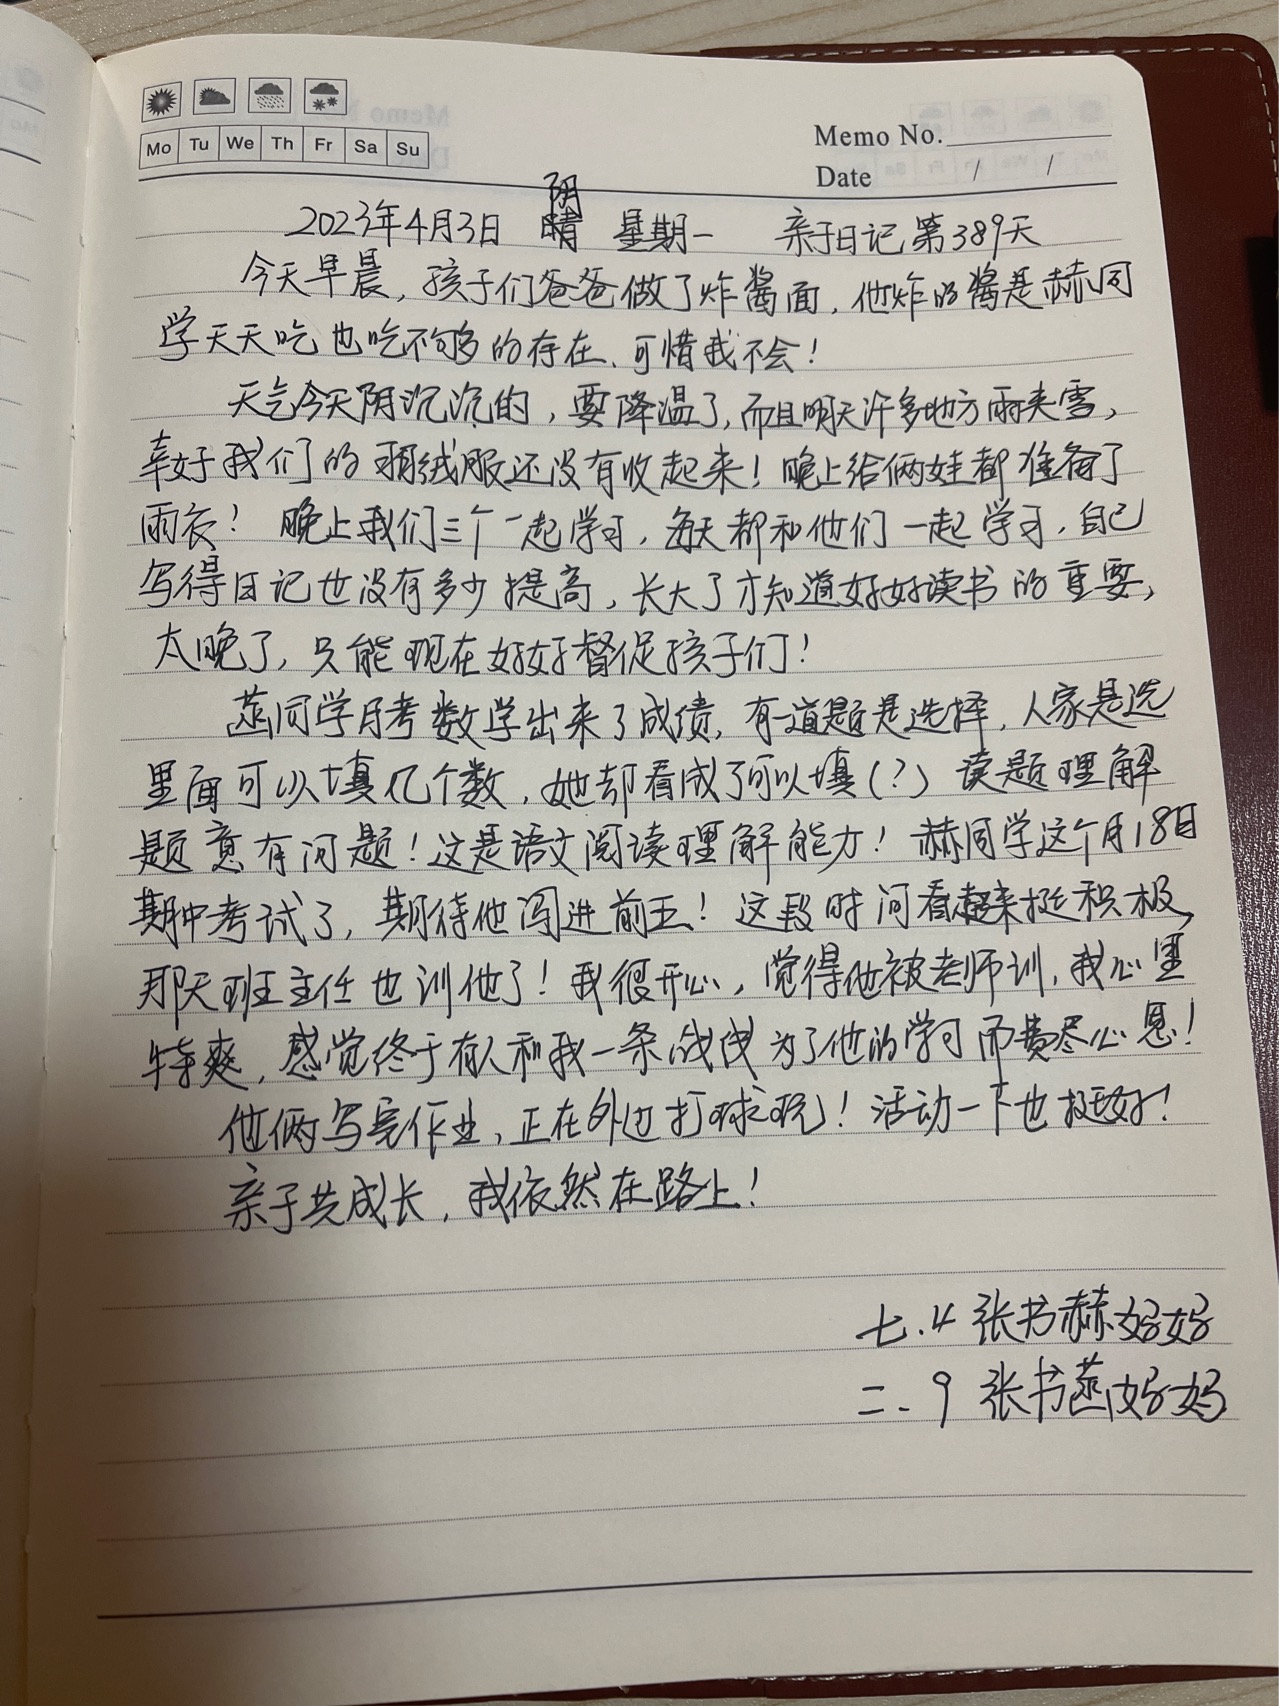 Mo Tu We Th Fr Sa Su
Memo No.
Date / /
阴
2023年4月3日 晴 星期一 亲子日记第389天
今天早晨，孩子们爸爸做了炸酱面，他炸的酱是赫同
学天天吃也吃不够的存在、可惜我不会！
天气今天阴沉沉的，要降温了，而且明天许多地方雨夹雪，
幸好我们的羽绒服还没有收起来！晚上给俩娃都准备了
雨衣！晚上我们三个一起学习，每天都和他们一起学习，自己
写得日记也没有多少提高，长大了才知道好好读书的重要，
太晚了，只能现在好好督促孩子们！
菡同学月考数学出来了成绩，有一道题是选择，人家是选
里面可以填几个数，她却看成了可以填(?) 读题理解
题意有问题！这是语文阅读理解能力！赫同学这个月18日
期中考试了，期待他闯进前五！这段时间看起来挺积极，
那天班主任也训他了！我很开心，觉得他被老师训，我心里
特爽，感觉终于有人和我一条战线为了他的学习而费尽心思！
他俩写完作业，正在外边打球玩！活动一下也挺好！
亲子共成长，我依然在路上！
七.4 张书赫妈妈
二.9 张书菡妈妈